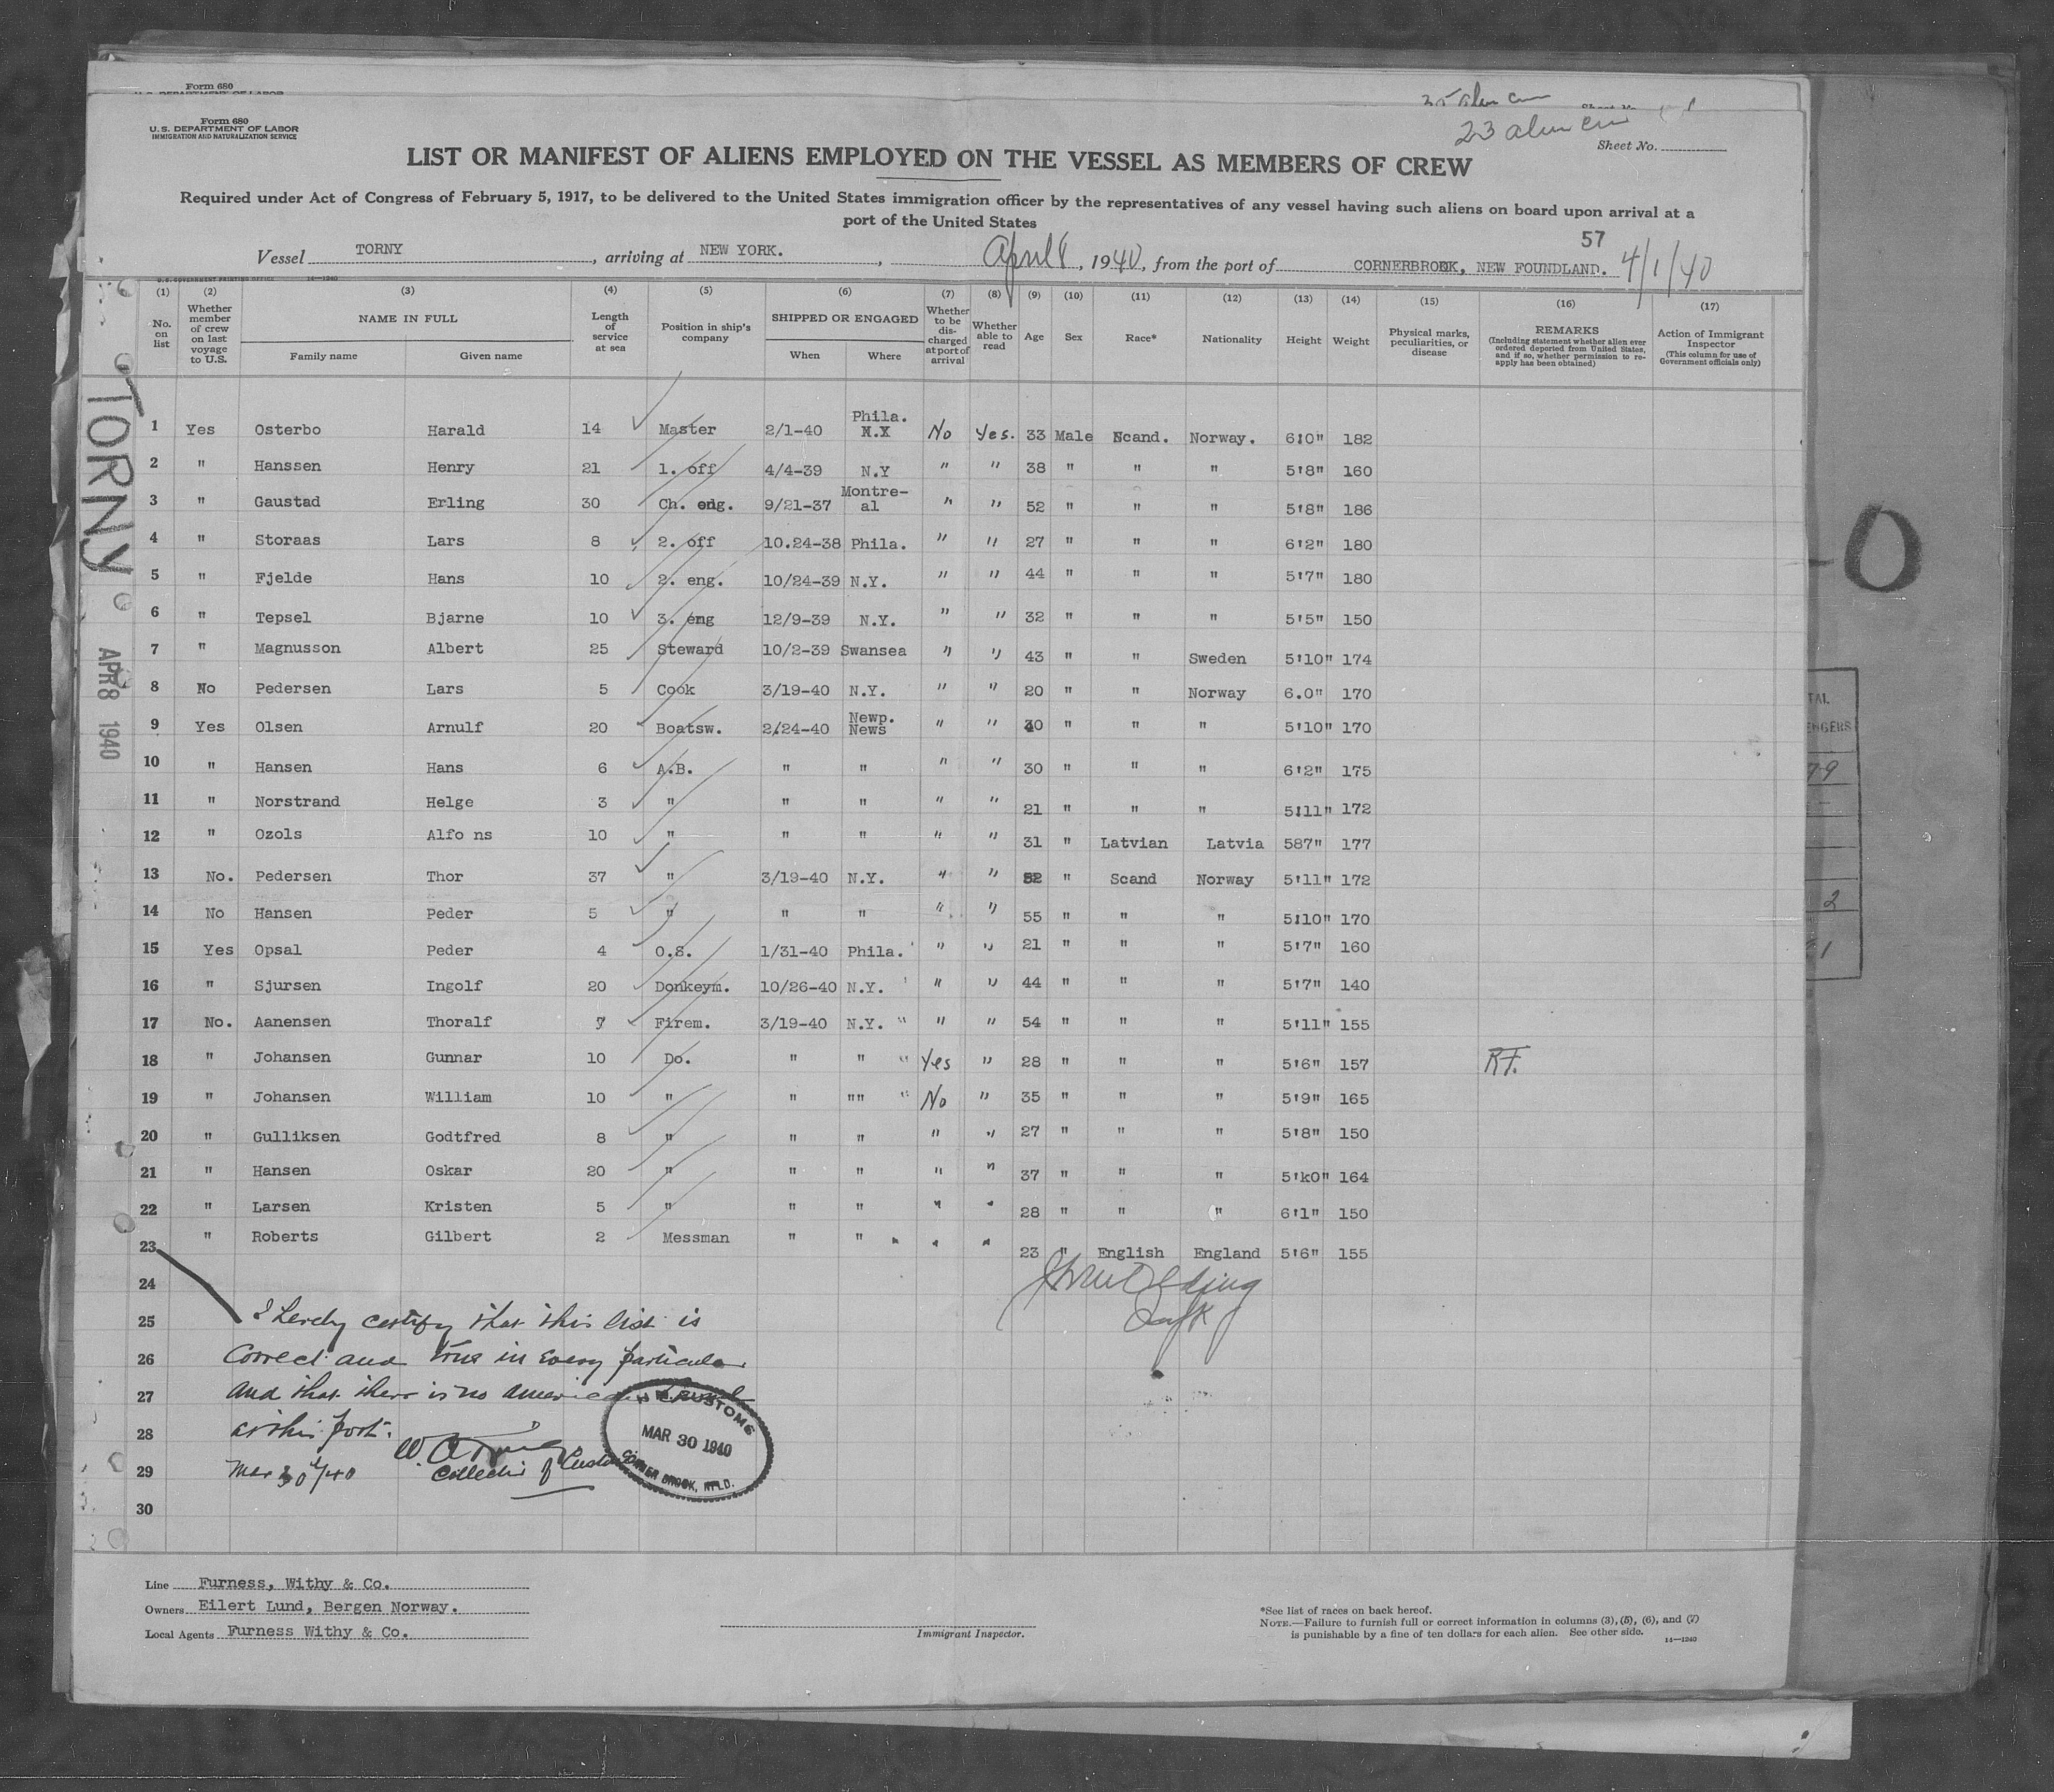 Form 680
U. S. DEPARTMENT OF LABOR
Form 680
U. S. DEPARTMENT OF LABOR
IMMIGRATION AND NATURALIZATION SERVICE
23 alien
Sheet No.
LIST OR MANIFEST OF ALIENS EMPLOYED ON THE VESSEL AS MEMBERS OF CREW
Required under Act of Congress of February 5, 1917, to be delivered to the United States immigration officer by the representatives of any vessel having such aliens on board upon arrival at a
port of the United States
57
Vessel TORNY, arriving at NEW YORK., April 8, 1940, from the port of CORNERBROOK, NEW FOUNDLAND. 4/1/40
U.S. GOVERNMENT PRINTING OFFICE 14—1240
(1) (2) (3) (4) (5) (6) (7) (8) (9) (10) (11) (12) (13) (14) (15) (16) (17)
No. on list
Whether member of crew on last voyage to U.S.
NAME IN FULL
Family name Given name
Length of service at sea
Position in ship's company
SHIPPED OR ENGAGED
When Where
Whether to be discharged at port of arrival
Whether able to read
Age Sex Race* Nationality Height Weight
Physical marks, peculiarities, or disease
REMARKS
(Including statement whether alien ever ordered deported from United States, and if so, whether permission to re-apply has been obtained)
Action of Immigrant Inspector
(This column for use of Government officials only)
1 Yes Osterbo Harald 14 Master 2/1-40 Phila. N.X No Yes. 33 Male Ncand. Norway. 6:0" 182
2 " Hanssen Henry 21 1. off 4/4-39 N.Y " " 38 " " " 5'8" 160
3 " Gaustad Erling 30 Ch. eng. 9/21-37 Montre-al " " 52 " " " 5'8" 186
4 " Storaas Lars 8 2. off 10.24-38 Phila. " " 27 " " " 6'2" 180
5 " Fjelde Hans 10 2. eng. 10/24-39 N.Y. " " 44 " " " 5'7" 180
6 " Tepsel Bjarne 10 3. eng 12/9-39 N.Y. " " 32 " " " 5'5" 150
7 " Magnusson Albert 25 Steward 10/2-39 Swansea " " 43 " " Sweden 5'10" 174
8 No Pedersen Lars 5 Cook 3/19-40 N.Y. " " 20 " " Norway 6.0" 170
9 Yes Olsen Arnulf 20 Boatsw. 2/24-40 Newp. News " " 40 " " " 5'10" 170
10 " Hansen Hans 6 A.B. " " " " 30 " " " 6'2" 175
11 " Norstrand Helge 3 " " " " " 21 " " " 5:11" 172
12 " Ozols Alfo ns 10 " " " " " 31 " Latvian Latvia 587" 177
13 No. Pedersen Thor 37 " 3/19-40 N.Y. " " 52 " Scand Norway 5'11" 172
14 No Hansen Peder 5 " " " " " 55 " " " 5:10" 170
15 Yes Opsal Peder 4 O.S. 1/31-40 Phila. " " 21 " " " 5'7" 160
16 " Sjursen Ingolf 20 Donkeym. 10/26-40 N.Y. " " 44 " " " 5'7" 140
17 No. Aanensen Thoralf 7 Firem. 3/19-40 N.Y. " " " 54 " " " 5'11" 155
18 " Johansen Gunnar 10 Do. " " " Yes " 28 " " " 5'6" 157 RF.
19 " Johansen William 10 " " "" " No " 35 " " " 5'9" 165
20 " Gulliksen Godtfred 8 " " " " " 27 " " " 5'8" 150
21 " Hansen Oskar 20 " " " " " 37 " " " 5'k0" 164
22 " Larsen Kristen 5 " " " " " 28 " " " 6'1" 150
23 " Roberts Gilbert 2 Messman " " " " " 23 " English England 5'6" 155
24
25 I hereby certify that this list is
26 correct and true in every particular
27 and that there is no American Consul
28 at this port.
W. A.
29 Mar 30th/40 Collector of Customs
30
H.M. CUSTOMS
MAR 30 1940
CORNER BROOK, NFLD.
TORNY
APR 8 1940
Line Furness, Withy & Co.
Owners Eilert Lund, Bergen Norway.
Local Agents Furness Withy & Co.
Immigrant Inspector.
*See list of races on back hereof.
NOTE.—Failure to furnish full or correct information in columns (3), (5), (6), and (7)
is punishable by a fine of ten dollars for each alien. See other side.
14—1240